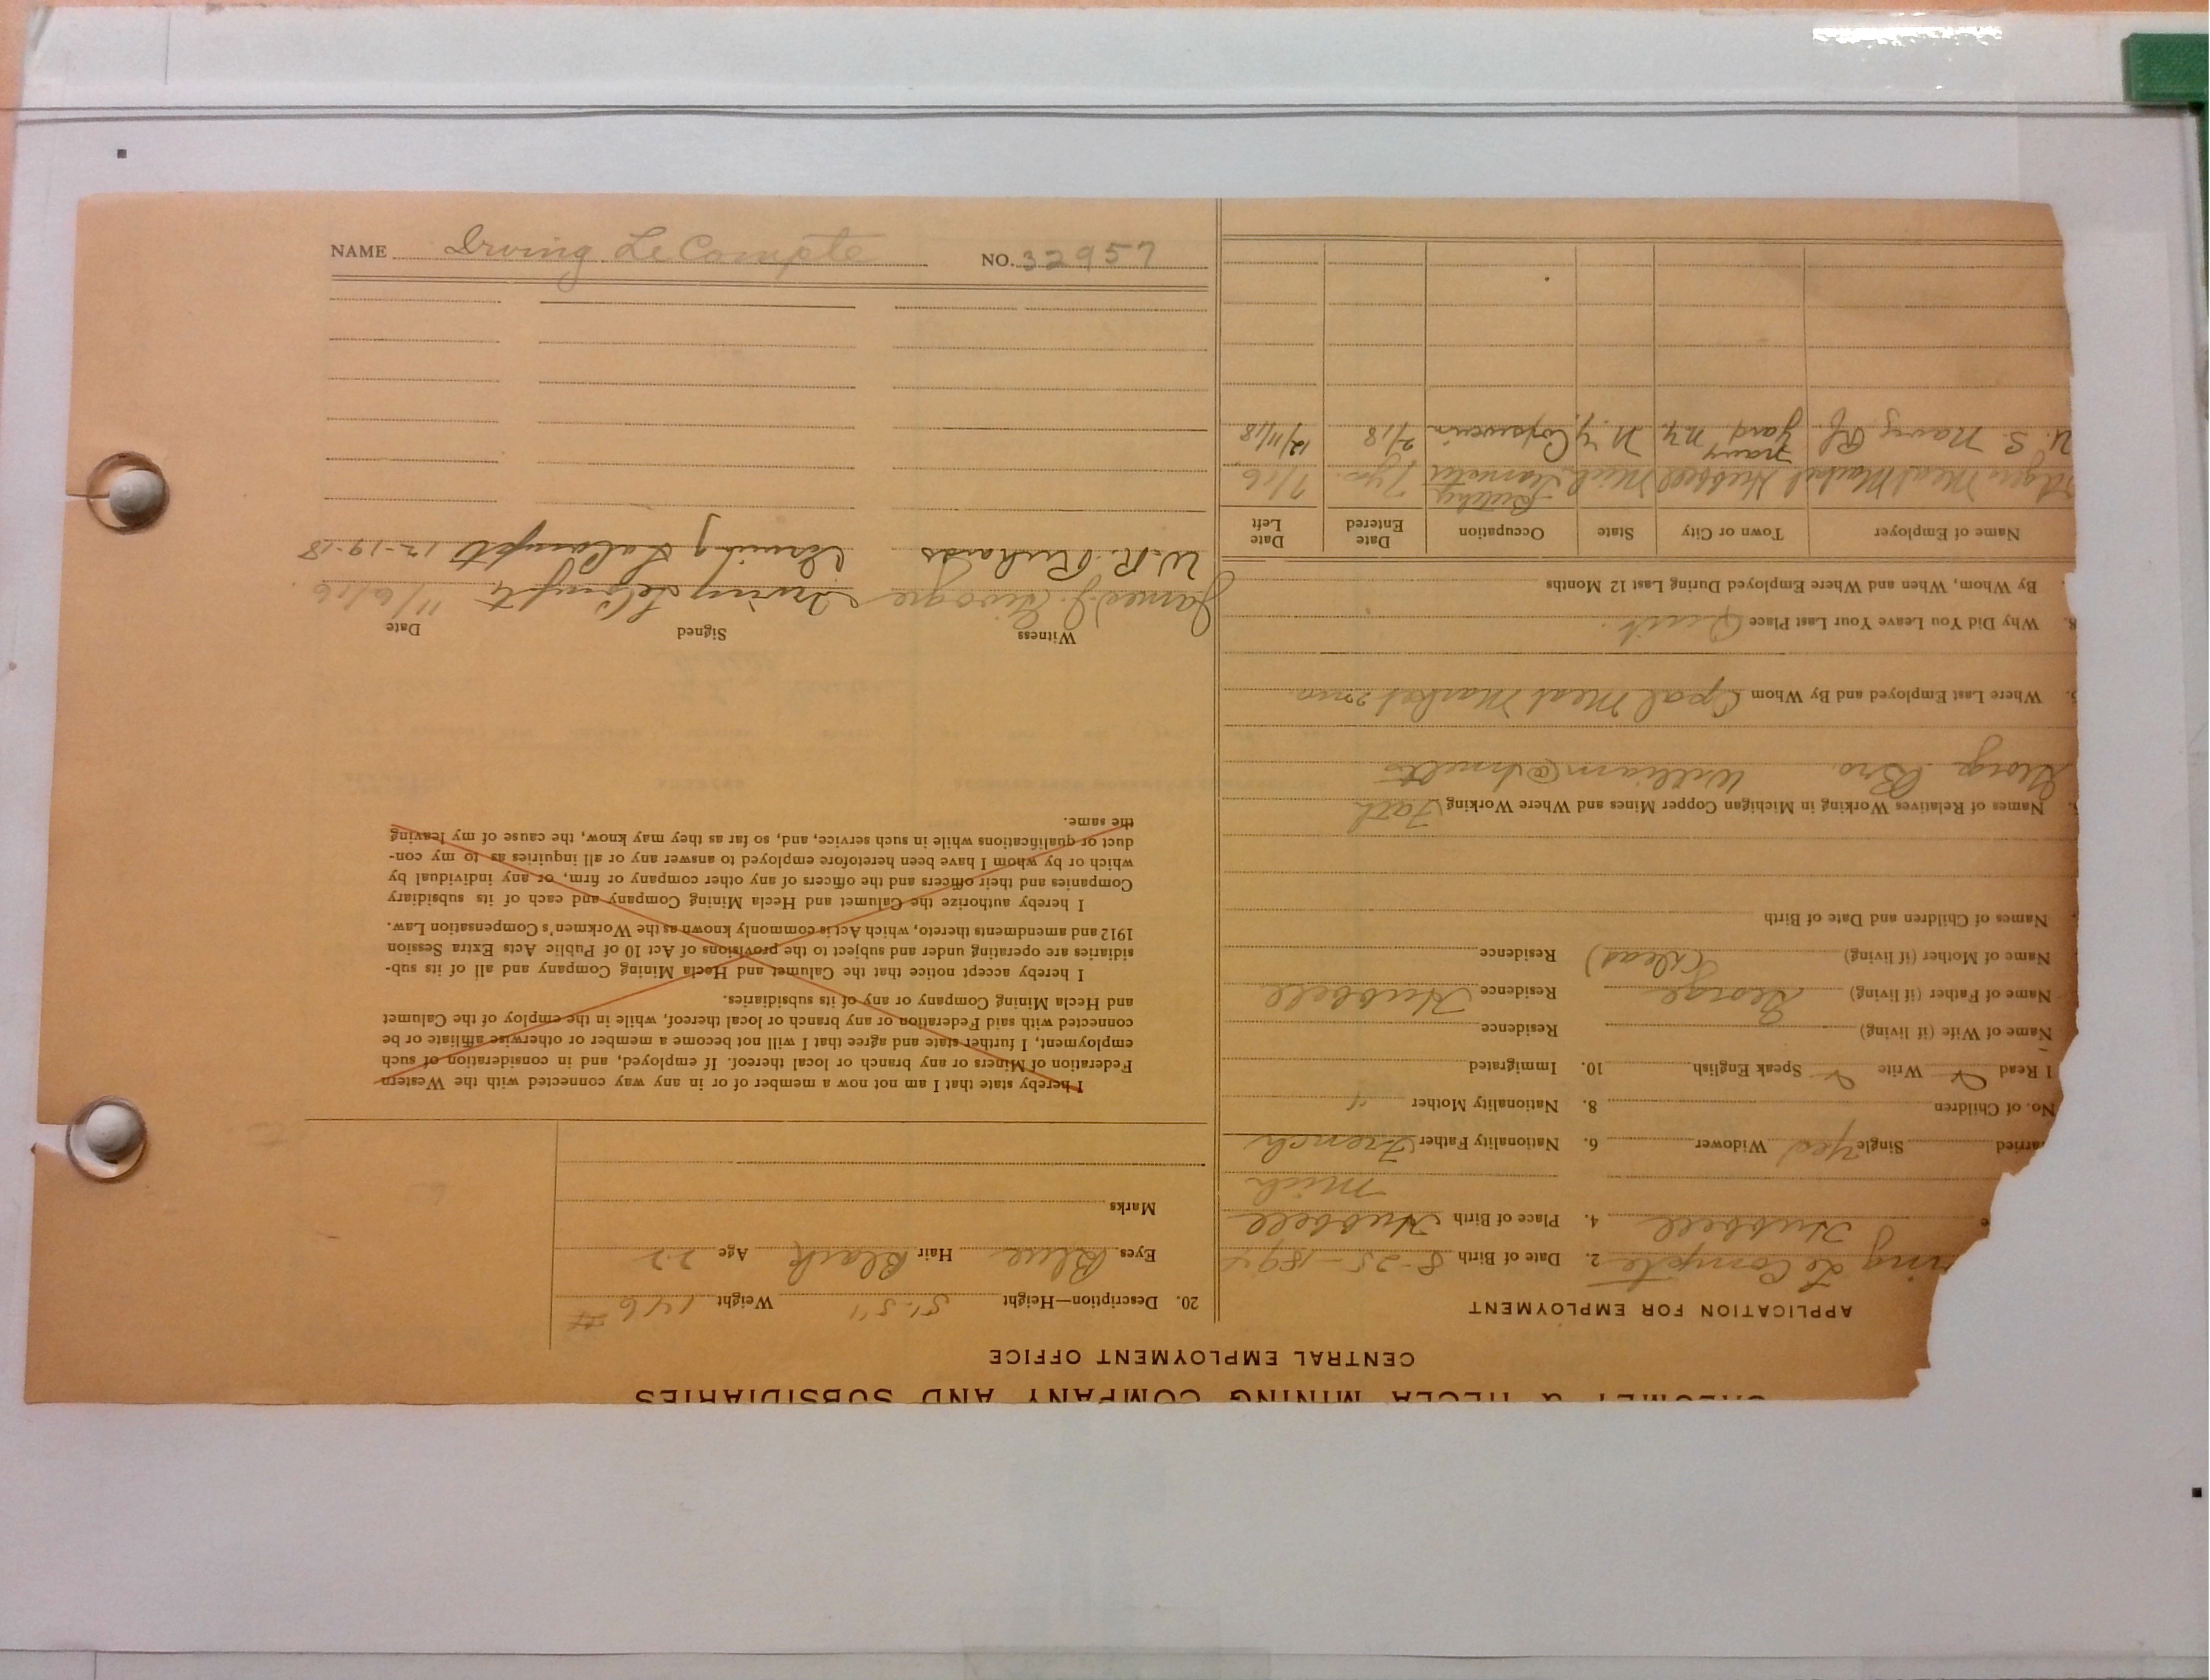 CALUMET & HECLA MINING COMPANY AND SUBSIDIARIES
CENTRAL EMPLOYMENT OFFICE
APPLICATION FOR EMPLOYMENT
ring Le Compte 2. Date of Birth 8-25-189
e Hubbell 4. Place of Birth Hubbell
Mich
arried Single Yes Widower 6. Nationality Father French
No. of Children 8. Nationality Mother "
I Read Write Speak English 10. Immigrated
Name of Wife (if living) Residence
Name of Father (if living) George Residence Hubbell
Name of Mother (if living) Residence
Names of Children and Date of Birth
Names of Relatives Working in Michigan Copper Mines and Where Working Fath
George Bro. William @ Smelter
Where Last Employed and By Whom Opal Meat Market
8. Why Did You Leave Your Last Place Quit
By Whom, When and Where Employed During Last 12 Months
Name of Employer Town or City State Occupation Date Entered Date Left
Meat Market Hubbell Mich 7 yrs. 7/16
U. S. Navy Rf. Navy Yard N.Y. N.Y. 2/18 12/11/18
20. Description—Height 5'-5" Weight 146 #
Eyes Blue Hair Black Age 22
Marks
I hereby state that I am not now a member of or in any way connected with the Western
Federation of Miners or any branch or local thereof. If employed, and in consideration of such
employment, I further state and agree that I will not become a member or otherwise affiliate or be
connected with said Federation or any branch or local thereof, while in the employ of the Calumet
and Hecla Mining Company or any of its subsidiaries.
I hereby accept notice that the Calumet and Hecla Mining Company and all of its sub-
sidiaries are operating under and subject to the provisions of Act 10 of Public Acts Extra Session
1912 and amendments thereto, which Act is commonly known as the Workmen's Compensation Law.
I hereby authorize the Calumet and Hecla Mining Company and each of its subsidiary
Companies and their officers and the officers of any other company or firm, or any individual by
which or by whom I have been heretofore employed to answer any or all inquiries as to my con-
duct or qualifications while in such service, and, so far as they may know, the cause of my leaving
the same.
Witness Signed Date
James J. Irving LeCompte 11/6/16
W. R. Richards Irving LeCompt 12-19-18
NAME Irving Le Compte NO. 32957